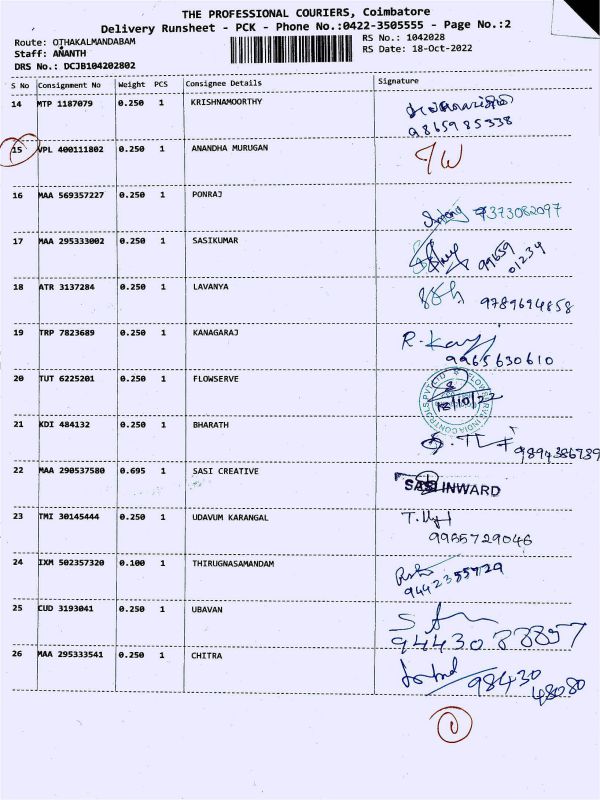 THE PROFESSIONAL COURIERS, Coimbatore
Delivery Runsheet - PCK - Phone No.:0422-3505555 - Page No.:2
Route: OTHAKALMANDABAM
Staff: ANANTH
DRS No.: DCJB104202802
RS No.: 1042028
RS Date: 18-Oct-2022
S No Consignment No Weight PCS Consignee Details Signature
14 MTP 1187079 0.250 1 KRISHNAMOORTHY
9865985338
15 VPL 400111802 0.250 1 ANANDHA MURUGAN
16 MAA 569357227 0.250 1 PONRAJ
7373082097
17 MAA 295333002 0.250 1 SASIKUMAR
99659
01234
18 ATR 3137284 0.250 1 LAVANYA
9789694858
19 TRP 7823689 0.250 1 KANAGARAJ
9965630610
20 TUT 6225201 0.250 1 FLOWSERVE
18/10/22
21 KDI 484132 0.250 1 BHARATH
9894386789
22 MAA 290537580 0.695 1 SASI CREATIVE
SASI INWARD
23 TMI 30145444 0.250 1 UDAVUM KARANGAL
9965729046
24 IXM 502357320 0.100 1 THIRUGNASAMANDAM
9442355729
25 CUD 3193041 0.250 1 UBAVAN
26 MAA 295333541 0.250 1 CHITRA
98430
48080